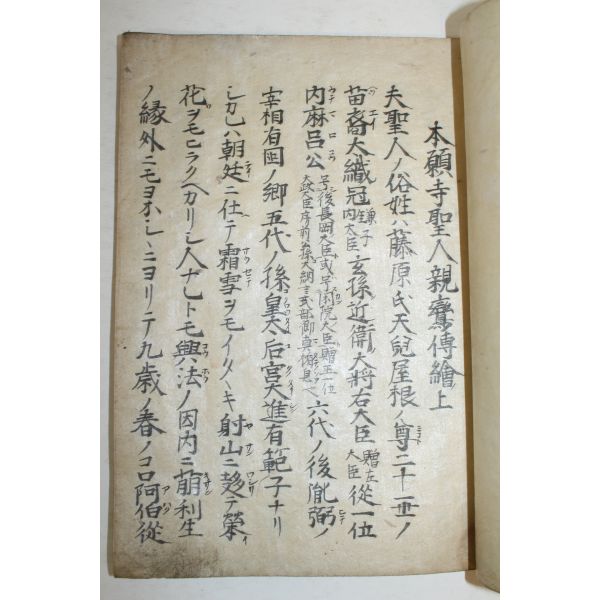 本願寺聖人親鸞傳繪上
夫聖人ノ俗姓ハ藤原氏天兒屋根ノ尊二十一世ノ
苗裔大織冠鎌子内大臣玄孫近衛大將右大臣贈左大臣從一位
内麻呂公号後長岡大臣或号閑院大臣贈正一位太政大臣房前孫大納言式部卿真楯息也六代ノ後胤弼ノ
宰相有国ノ卿五代ノ孫皇太后宮大進有範子ナリ
シカレハ朝廷ニ仕テ霜雪ヲモイタヽキ射山ニ趍テ榮
花ヲモヒラクヘカリシ人ナレトモ興法ノ因内ニ萠利生
ノ縁外ニモヨホシヽニヨリテ九歳ノ春ノコロ阿伯從